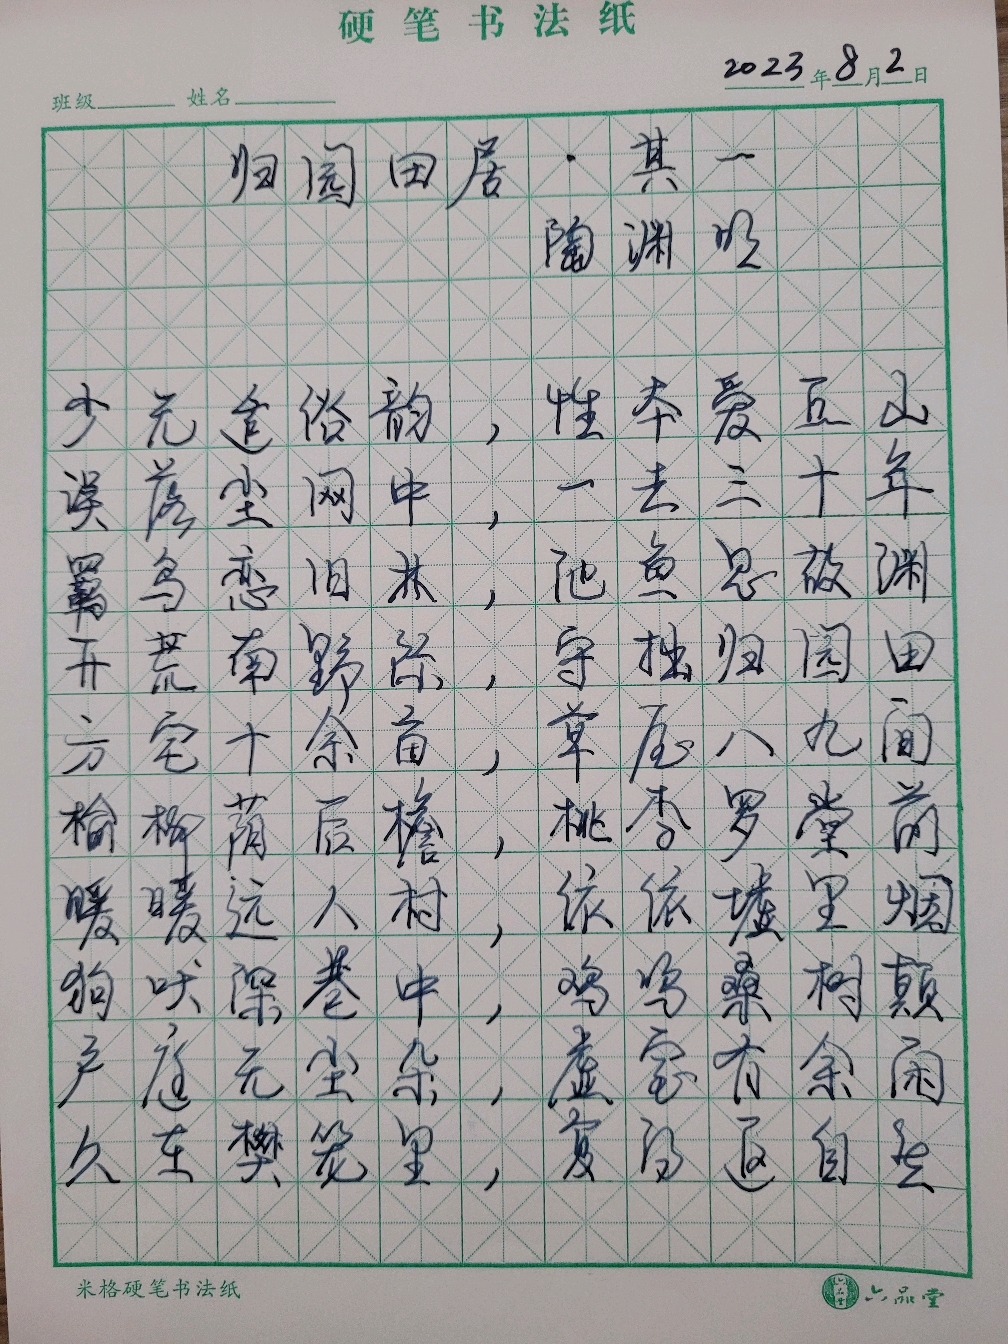 硬笔书法纸
2023年8月2日
班级 姓名
归园田居·其一
陶渊明
少无适俗韵，性本爱丘山
误落尘网中，一去三十年
羁鸟恋旧林，池鱼思故渊
开荒南野际，守拙归园田
方宅十余亩，草屋八九间
榆柳荫后檐，桃李罗堂前
暧暧远人村，依依墟里烟
狗吠深巷中，鸡鸣桑树颠
户庭无尘杂，虚室有余闲
久在樊笼里，复得返自然
米格硬笔书法纸
六品堂